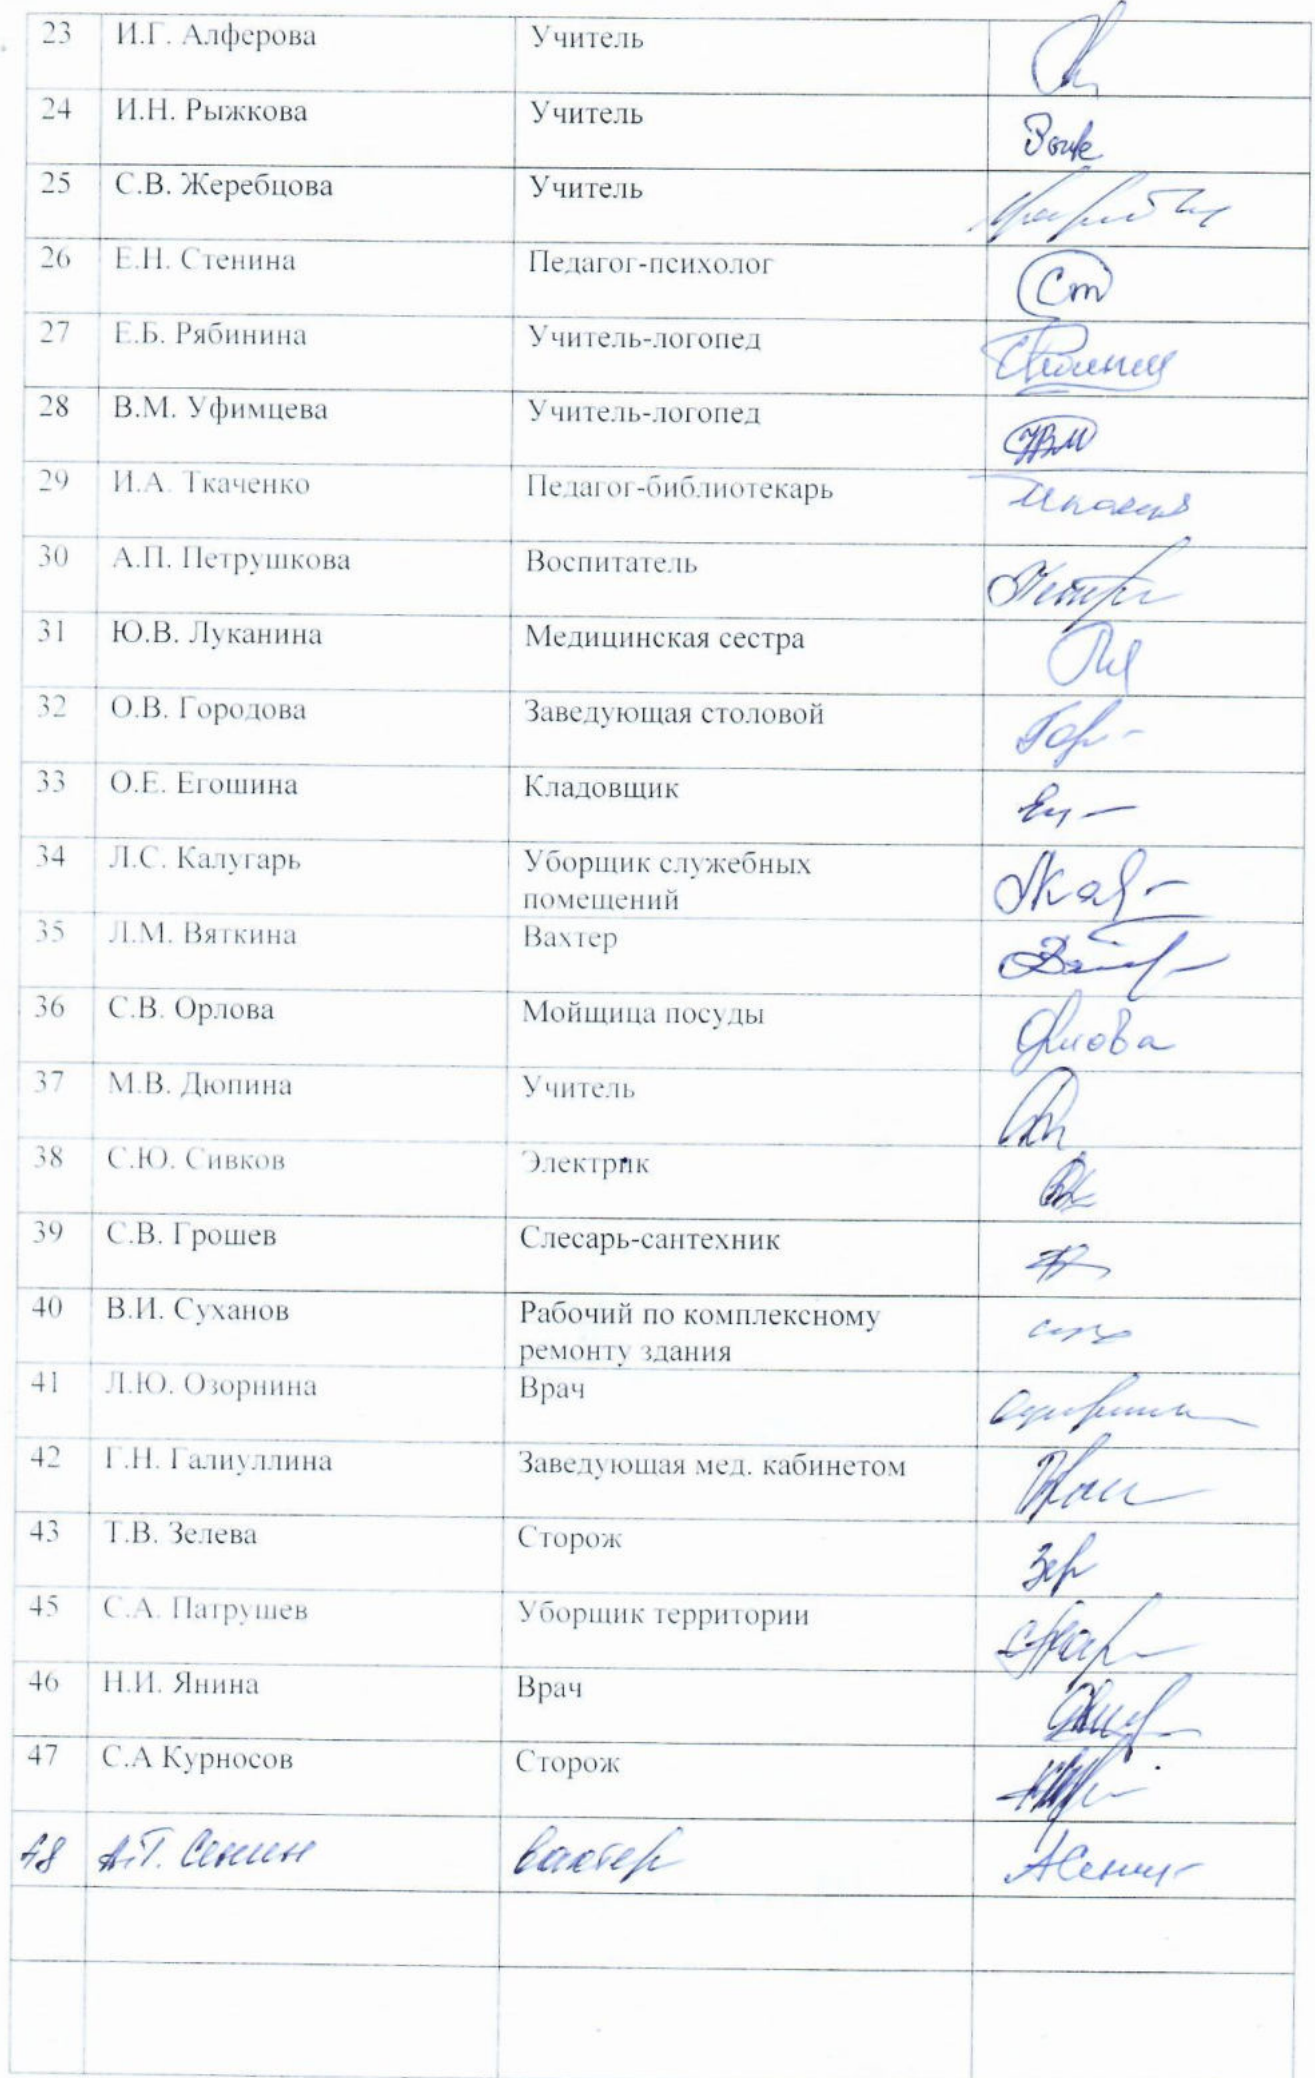 23 И.Г. Алферова Учитель
24 И.Н. Рыжкова Учитель
25 С.В. Жеребцова Учитель
26 Е.Н. Стенина Педагог-психолог Ст
27 Е.Б. Рябинина Учитель-логопед
28 В.М. Уфимцева Учитель-логопед УВМ
29 И.А. Ткаченко Педагог-библиотекарь
30 А.П. Петрушкова Воспитатель
31 Ю.В. Луканина Медицинская сестра
32 О.В. Городова Заведующая столовой Гор
33 О.Е. Егошина Кладовщик
34 Л.С. Калугарь Уборщик служебных
помещений
35 Л.М. Вяткина Вахтер
36 С.В. Орлова Мойщица посуды Орлова
37 М.В. Дюпина Учитель
38 С.Ю. Сивков Электрик
39 С.В. Грошев Слесарь-сантехник
40 В.И. Суханов Рабочий по комплексному
ремонту здания
41 Л.Ю. Озорнина Врач
42 Г.Н. Галиуллина Заведующая мед. кабинетом
43 Т.В. Зелева Сторож
45 С.А. Патрушев Уборщик территории
46 Н.И. Янина Врач
47 С.А Курносов Сторож
48 А.Т. Сенин вахтер АСенин